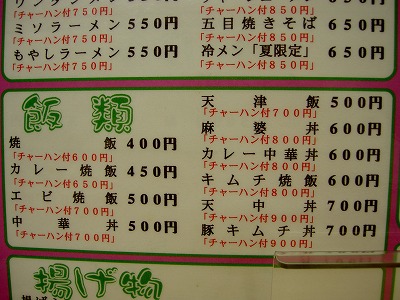 「チャーハン付750円」
ミソラーメン 550円
「チャーハン付750円」
もやしラーメン 550円
「チャーハン付750円」
「チャーハン付850円」
五目焼きそば 650円
「チャーハン付850円」
冷メン「夏限定」 650円
「チャーハン付850円」
飯類
焼飯 400円
「チャーハン付600円」
カレー焼飯 450円
「チャーハン付650円」
エビ焼飯 500円
「チャーハン付700円」
中華丼 500円
「チャーハン付700円」
天津飯 500円
「チャーハン付700円」
麻婆丼 600円
「チャーハン付800円」
カレー中華丼 600円
「チャーハン付800円」
キムチ焼飯 600円
「チャーハン付800円」
天中丼 700円
「チャーハン付900円」
豚キムチ丼 700円
「チャーハン付900円」
揚げ物